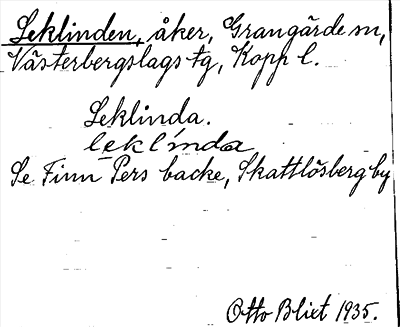 Leklinden, åker, Grangärde sn,
Västerbergslags tg, Kopp l.
Leklinda.
leklínda
Se Finn Pers backe, Skattlösberg by
Otto Blixt 1935.